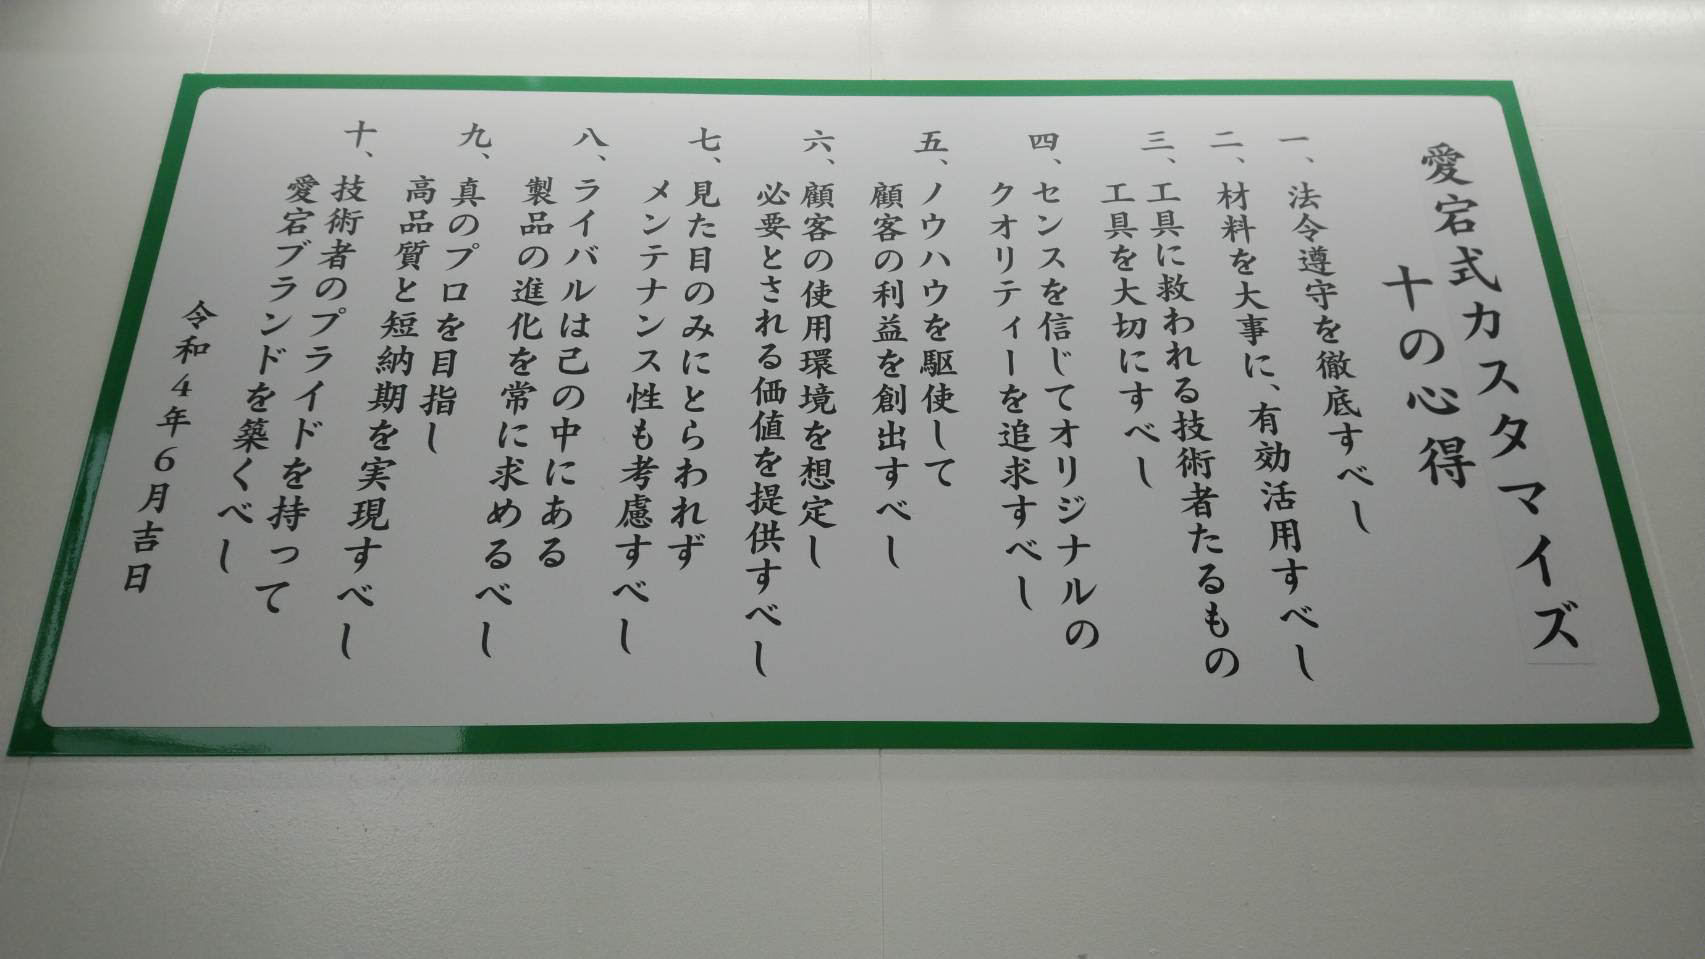 愛宕式カスタマイズ
十の心得
一、法令遵守を徹底すべし
二、材料を大事に、有効活用すべし
三、工具に救われる技術者たるもの
工具を大切にすべし
四、センスを信じてオリジナルの
クオリティーを追求すべし
五、ノウハウを駆使して
顧客の利益を創出すべし
六、顧客の使用環境を想定し
必要とされる価値を提供すべし
七、見た目のみにとらわれず
メンテナンス性も考慮すべし
八、ライバルは己の中にある
製品の進化を常に求めるべし
九、真のプロを目指し
高品質と短納期を実現すべし
十、技術者のプライドを持って
愛宕ブランドを築くべし
令和4年6月吉日